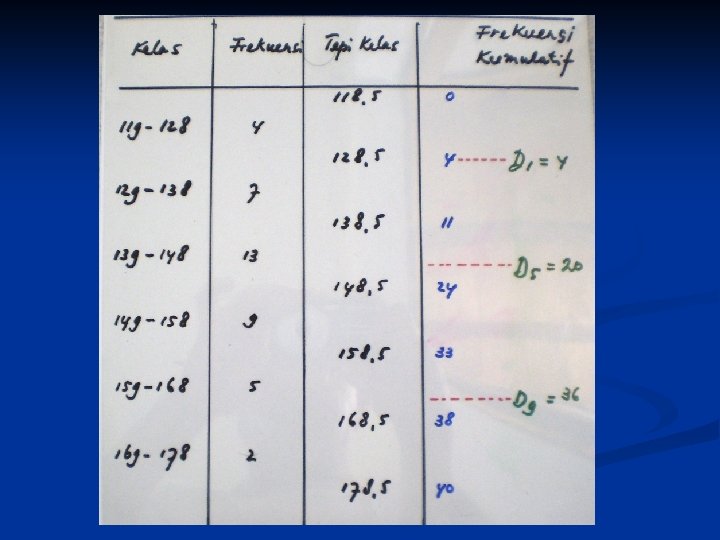 Kelas Frekuensi Tepi Kelas Frekuensi Kumulatif
118,5 0
119-128 4
128,5 4 ------ D1 = 4
129-138 7
138,5 11
139-148 13
------ D5 = 20
148,5 24
149-158 9
158,5 33
159-168 5
------ D9 = 36
168,5 38
169-178 2
178,5 40